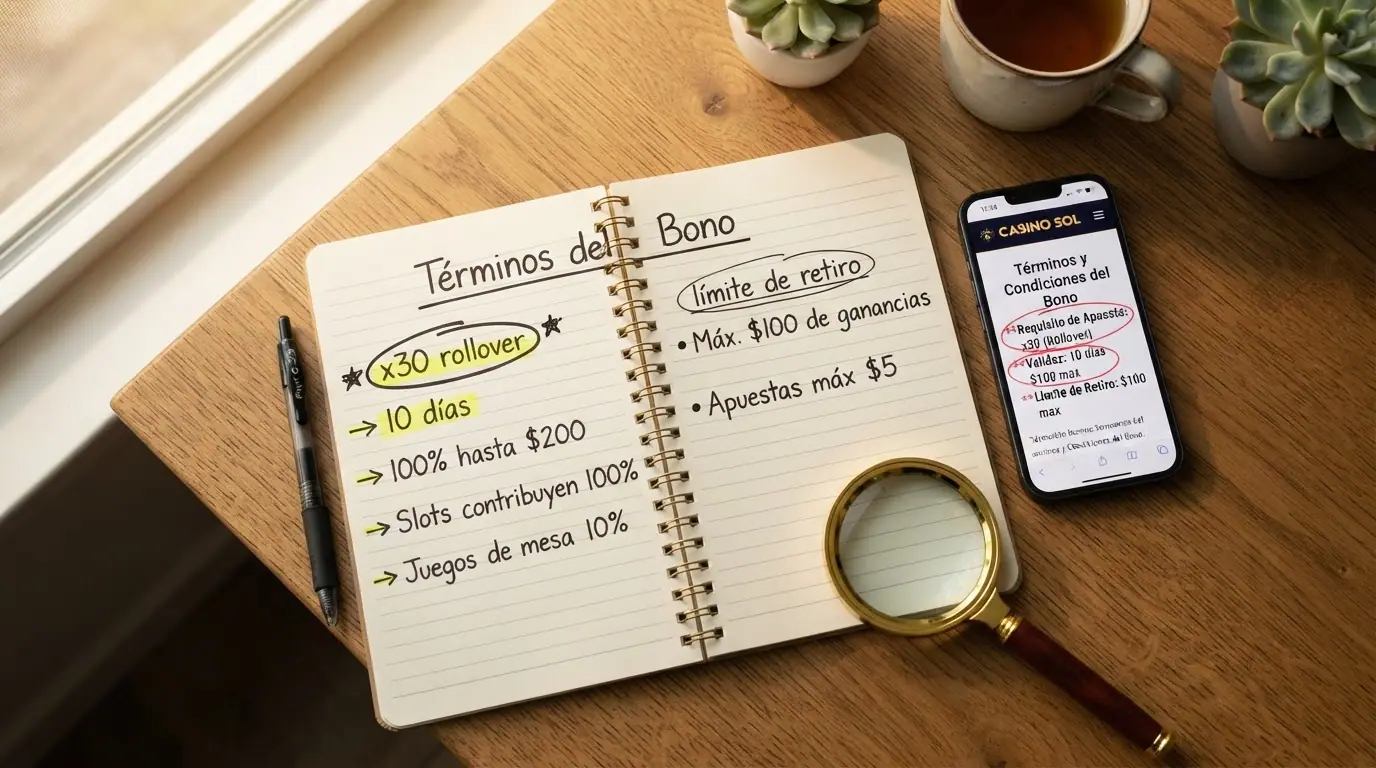 Términos del Bono
x30 rollover
→ 10 días
→ 100% hasta $200
→ Slots contribuyen 100%
→ Juegos de mesa 10%
límite de retiro
• Máx. $100 de ganancias
• Apuestas máx $5
CASINO SOL
Términos y
Condiciones del
Bono
Requisito de Apuesta:
x30 (Rollover)
10 días
$100 max
de Retiro: $100
max